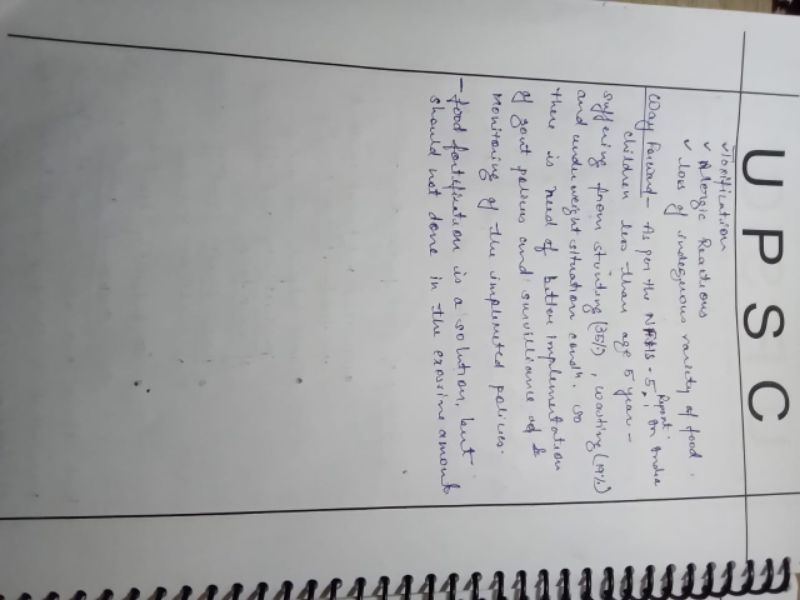 UPSC
✓ Toxification
✓ Allergic Reactions
✓ loss of indegenous variety of food.
Way Forward - As per the NFHS-5 Report, in India
children less than age 5 year -
suffering from stunting (35%), wasting (19%)
and underweight situation condn. so
there is need of better implementation
of govt policies and survilliance of &
monitoring of the implemeted policies.
- food fortification is a solution, but
should not done in the excessive amount